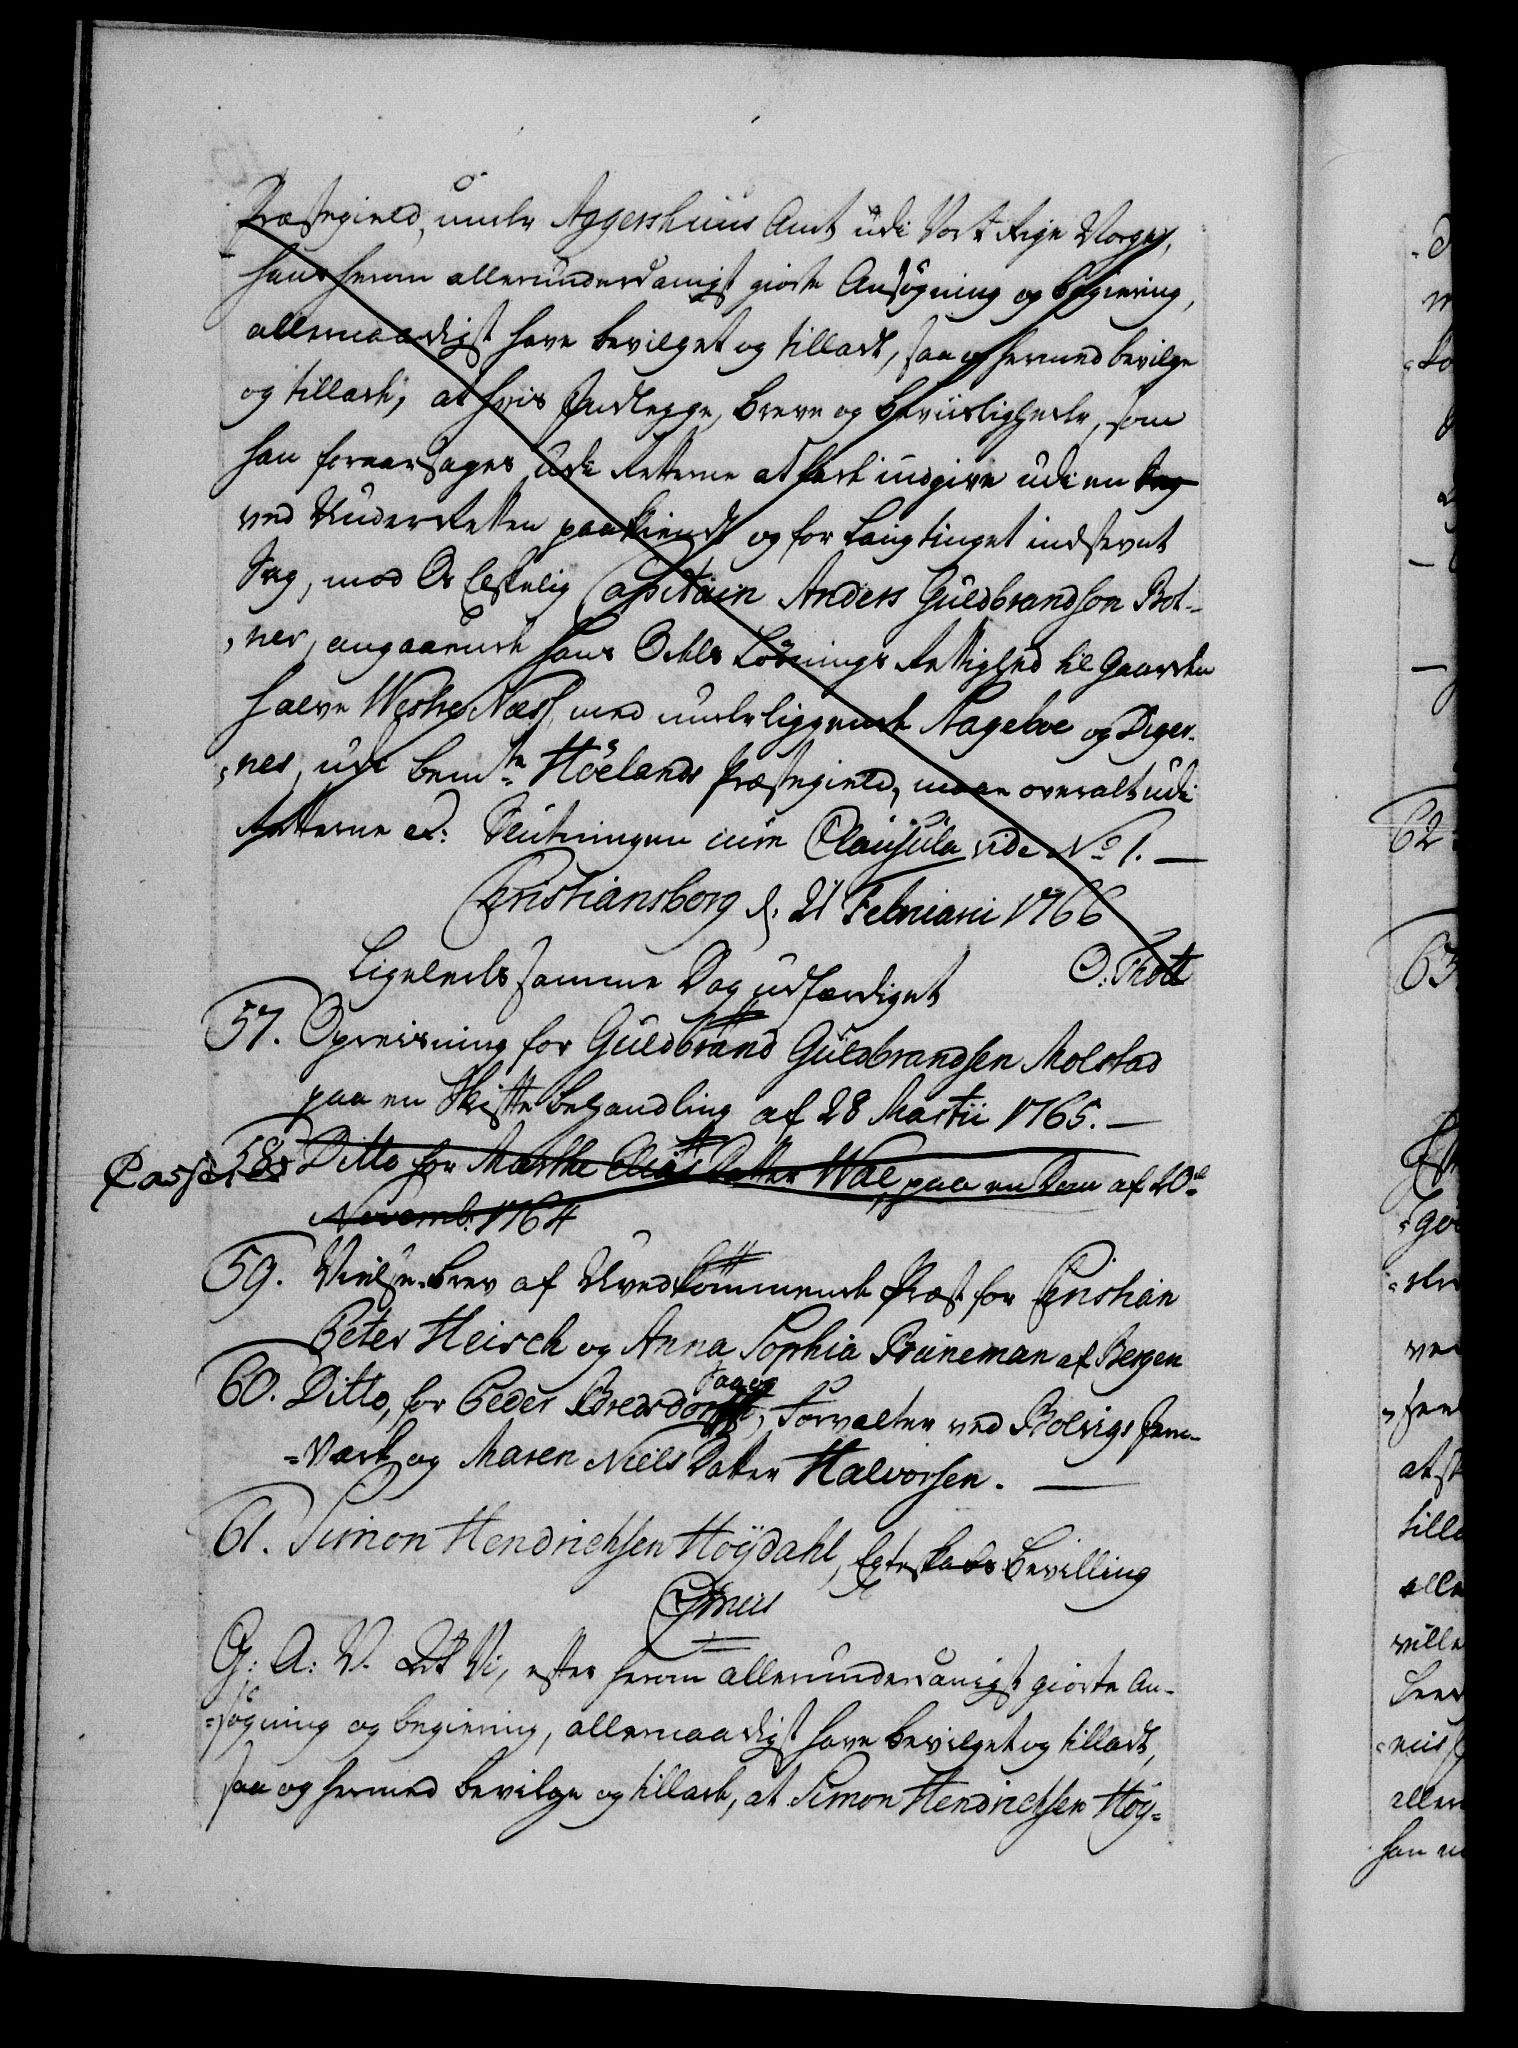 Præstegield, under Aggershuus Amt udi Vort Rige Norge,
hans herom allerunderdanigst giorte Ansøgning og begiering,
allernaadigst have bevilget og tilladt, saa og hermed bevilge
og tillade, at hvis Indlegge, Breve og beviisligheder, som
han foraarsages udi Retterne at lade indgive udi en Sag
ved Underretten paakiendt og for Laugtinget indstevnt
Sag, mod Os Elskelig Capitain Anders Guldbrandson Bol-
-ner, angaaende hans Odels Løsnings Rettighed til Gaarden
halve Westre Næss, med underliggende Nagelve og Diger-
-nes, udi bemte Høelands Præstegield, maae overalt udi
Retterne etc: Slutningen cum Clausula vide No 1. —
Christiansborg d: 21 Februarii 1766
O. Thott
Ligeledes samme Dag udfærdiget
57. Opreisning for Guldbrand Guldbrandsen Molstad
paa en Skiftebehandling af 28 Martii 1765. —
Casseres 58. Ditto for Marthe Elias Datter Wae, paa en Dom af 20de
Novemb: 1764
59. Vielse-brev af Uvedkommende Præst for Christian
Peter Heirch og Anna Sophia Bruneman af Bergen
60. Ditto, for Peder Bredsdorff, Forvalter ved Bolvigs Jern-
-Værk og Maren Niels Datter Halvorsen. —
61. Simon Hendrichsen Høÿdahl, Egteskabs Bevilling
G: A: V. At Vi, efter herom allerunderdanigst giorte An-
-søgning og begiering, allernaadigst have bevilget og tilladt,
saa og hermed bevilge og tillade, at Simon Hendrichsen Høÿ-
62
63